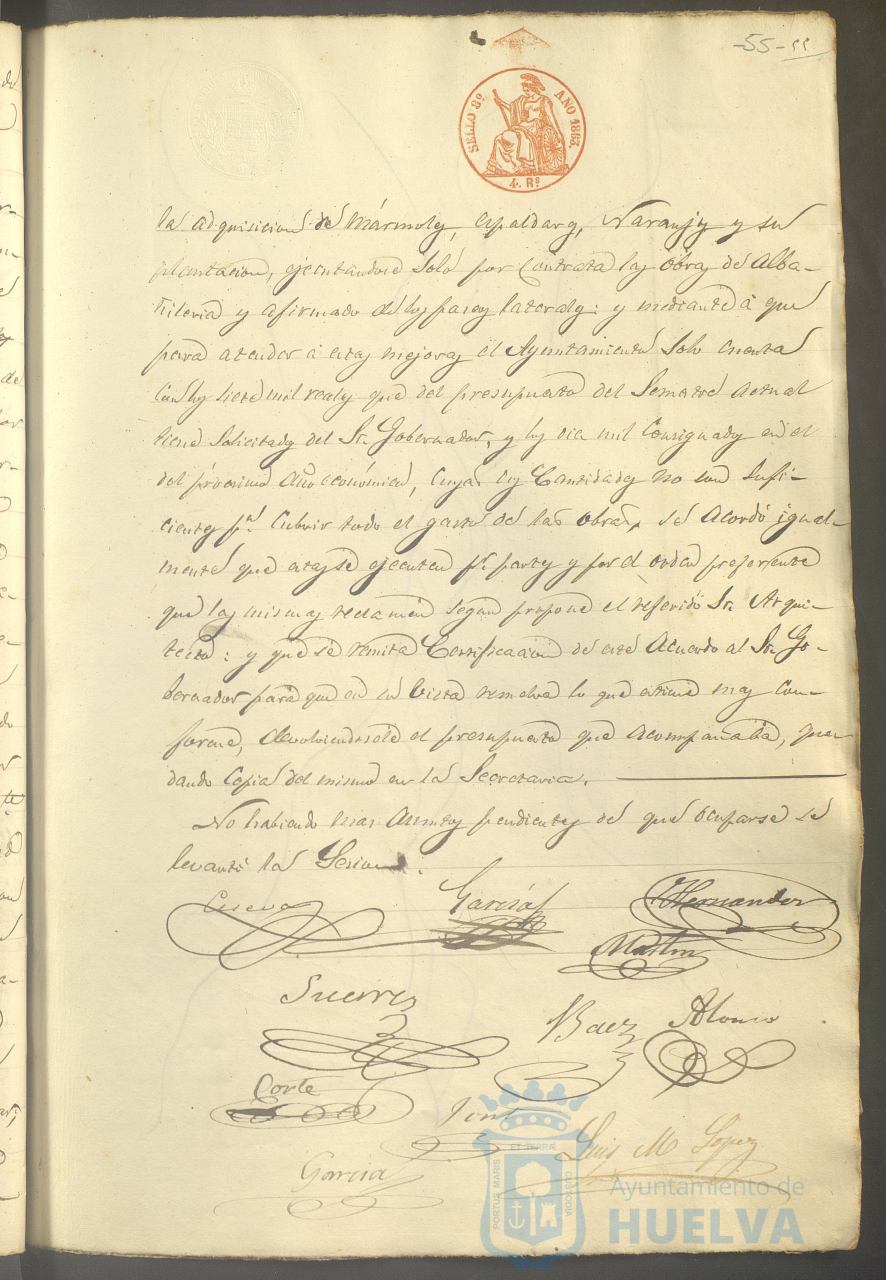 -55- 55
SELLO 8º AÑO 1863.
4. Rs
la adquisicion de Mármoles, espaldares, Naranjos y su
plantacion, ejecutandose solo por Contrata las obras de Alba-
ñileria y afirmado de los paseos laterales: y mediante á que
para atender á estas mejoras el Ayuntamiento solo cuenta
con los siete mil reales que del presupuesto del Semestre actual
tiene solicitados del Sr. Gobernador, y los diez mil consignados en el
del procsimo año económico, cuyas Cantidades no son sufi-
cientes pa. cubrir todo el gasto de las obras, se acordó igual-
mente que estas se ejecuten pr. partes y por el orden preferente
que las mismas reclamen segun propone el referido Sr. Arqui-
tecto: y que se remita Certificacion de este Acuerdo al Sr. Go-
bernador para que en su vista resuelva lo que estime mas con-
forme, devolviendosele el presupuesto que acompañaba, que-
dando Copia del mismo en la Secretaria.
No habiendo mas asuntos pendientes de que ocuparse se
levantó la Sesion.
Cueva Garcia Hernandez
Martin
Suerro
Baez Alonso
Corte
Garcia
Luis M Lopez
PORTUS MARIS ET TERRÆ CUSTODIA
Ayuntamiento de
HUELVA